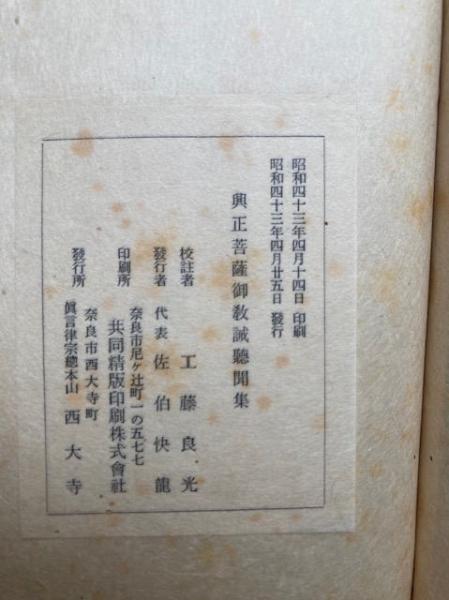 昭和四十三年四月十四日 印刷
昭和四十三年四月廿五日 發行
興正菩薩御敎誡聽聞集
校註者 工藤良光
發行者 代表 佐伯快龍
奈良市尼ヶ辻町一の五七七
印刷所 共同精版印刷株式會社
奈良市西大寺町
發行所 眞言律宗總本山 西大寺